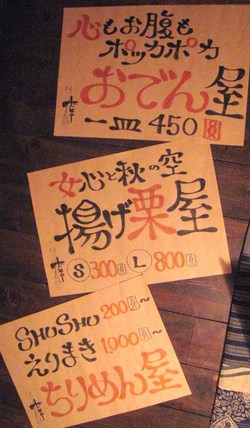 心もお腹も
ポッカポカ
おでん屋
一皿 450円
女心と秋の空
揚げ栗屋
S 300円 L 800円
SHUSHU 200円~
えりまき 1000円~
ちりめん屋